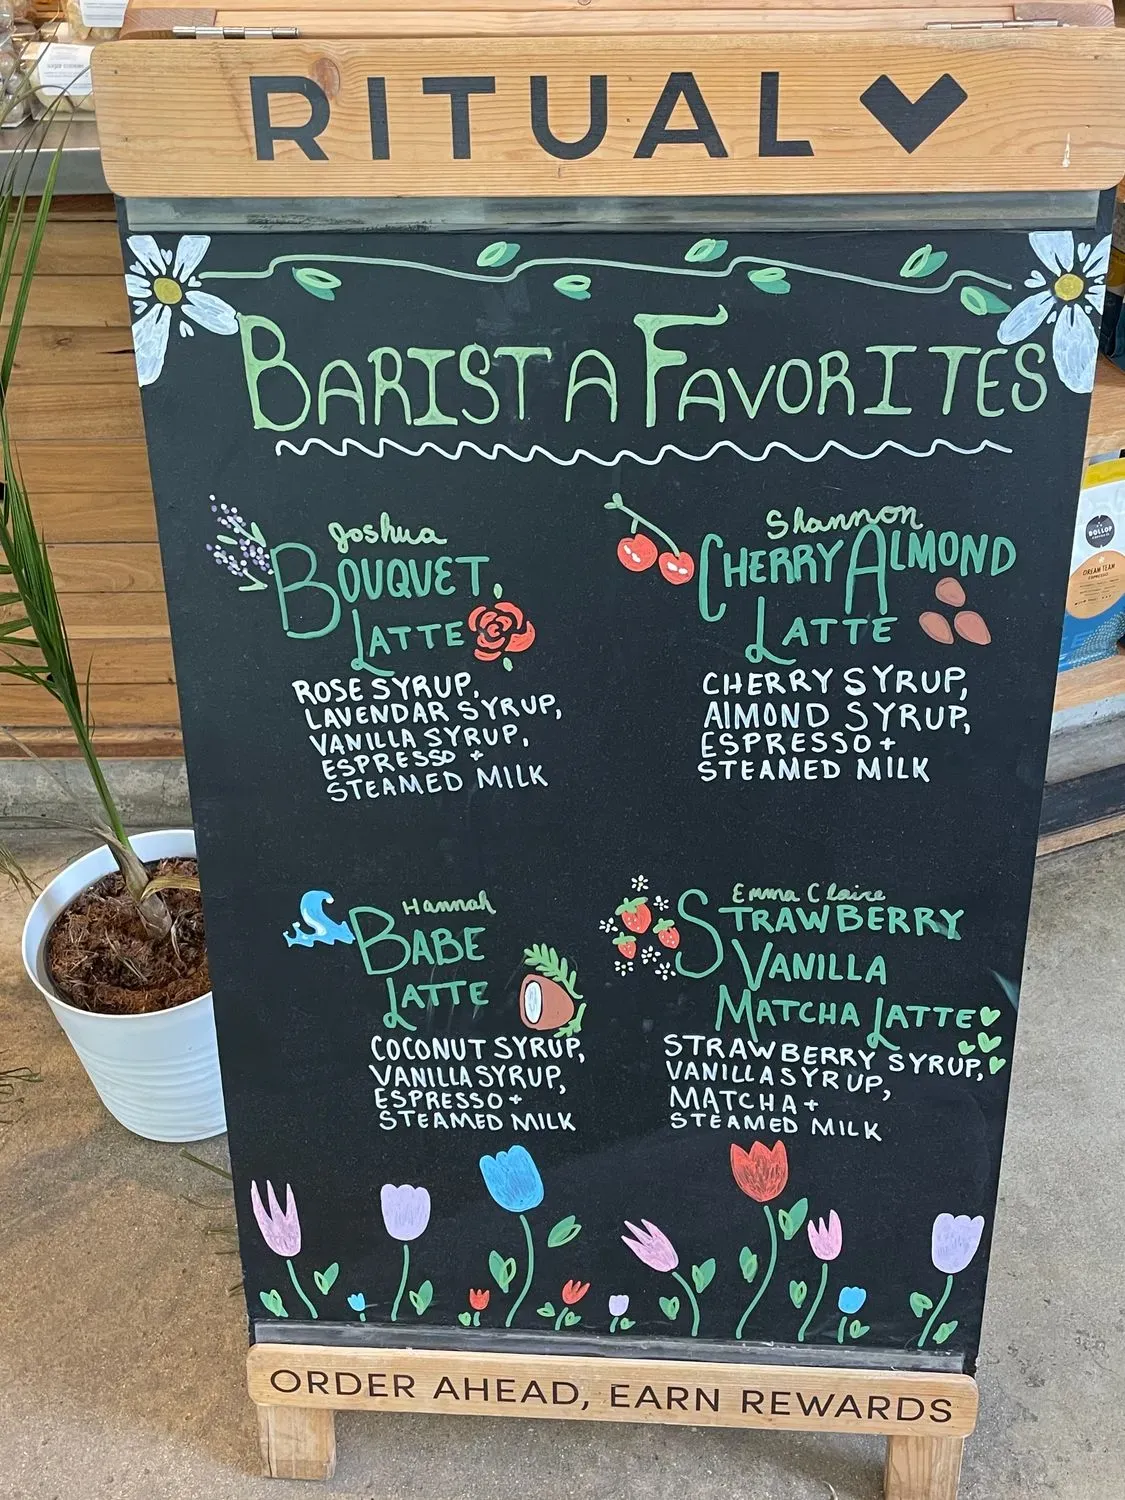 RITUAL
BARISTA FAVORITES
Joshua
BOUQUET
LATTE
ROSE SYRUP,
LAVENDAR SYRUP,
VANILLA SYRUP,
ESPRESSO +
STEAMED MILK
Shannon
CHERRY ALMOND
LATTE
CHERRY SYRUP,
AlMOND SYRUP,
ESPRESSO +
STEAMED MILK
Hannah
BABE
LATTE
COCONUT SYRUP,
VANILLA SYRUP,
ESPRESSO +
STEAMED MILK
Emma Claire
STRAWBERRY
VANILLA
MATCHA LATTE
STRAWBERRY SYRUP,
VANILLA SYRUP,
MATCHA +
STEAMED MILK
ORDER AHEAD, EARN REWARDS
DOLLOP
DREAM TEAM
ESPRESSO